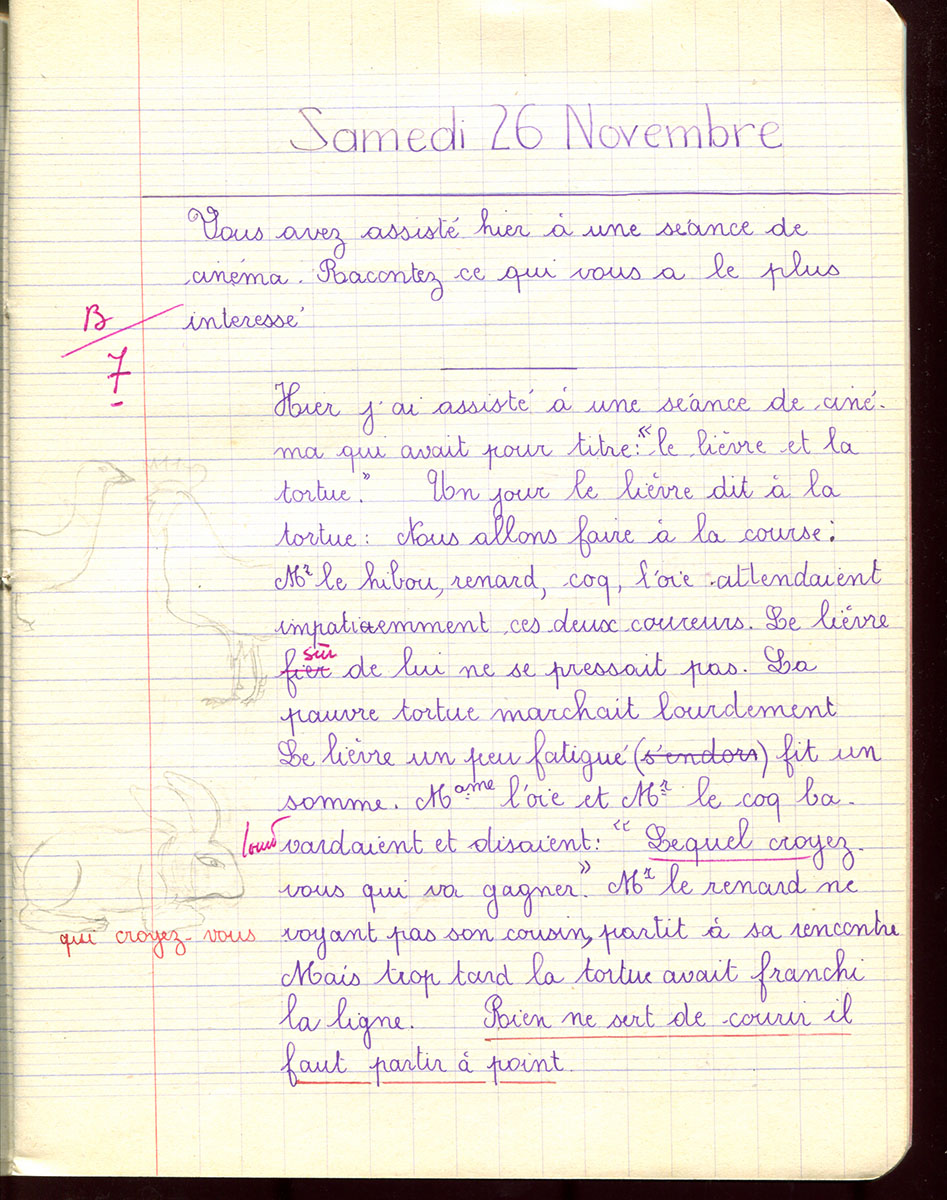 Samedi 26 Novembre
Vous avez assisté hier à une séance de
cinéma. Racontez ce qui vous a le plus
interessé
B
7
Hier j'ai assisté à une séance de ciné-
ma qui avait pour titre: "le lièvre et la
tortue." Un jour le lièvre dit à la
tortue: Nous allons faire à la course:
Mr le hibou, renard, coq, l'oie attendaient
impatiemment ces deux coureurs. Le lièvre
sûr
fier de lui ne se pressait pas. La
pauvre tortue marchait lourdement
Le lièvre un peu fatigué (s'endors) fit un
somme. Mame l'oie et Mr le coq ba-
lourd vardaient et disaient: " Lequel croyez-
vous qui va gagner." Mr le renard ne
qui croyez-vous voyant pas son cousin, partit à sa rencontre
Mais trop tard la tortue avait franchi
la ligne. Rien ne sert de courir il
faut partir à point.